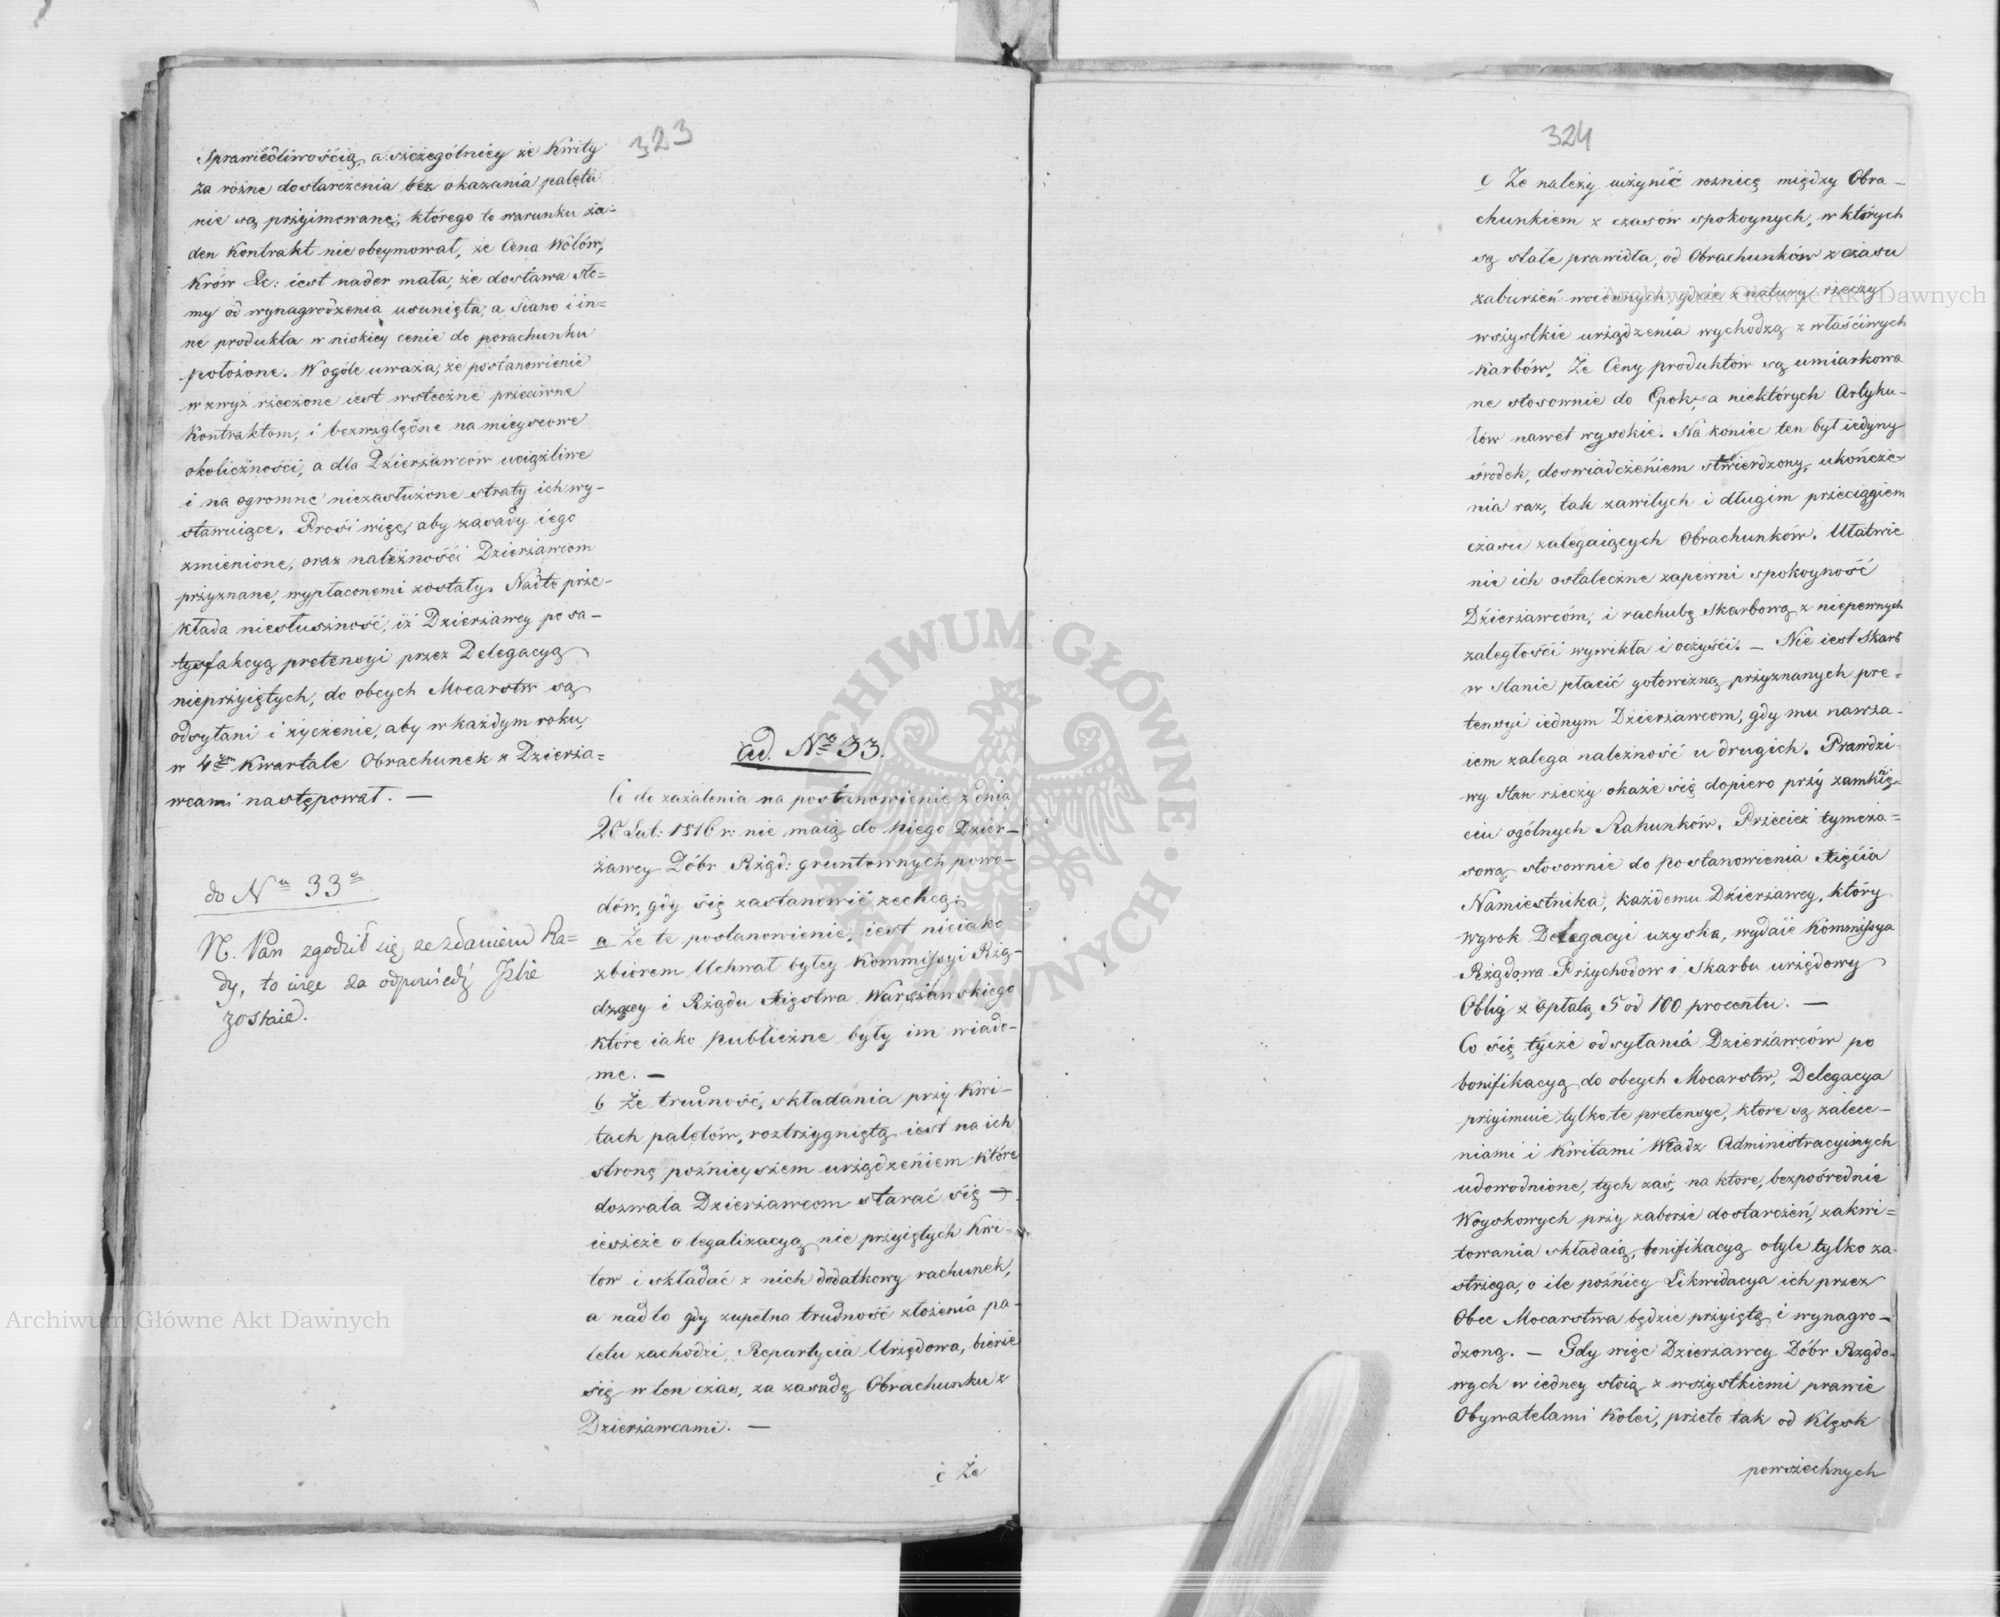 323
Sprawiedliwością, a szczególniey że Kwity
za różne dostarczenia bez okazania paletu
nie są przyimowane; którego to warunku ża=
den Kontrakt nie obeymował, że Cena Wołów,
Krów &c: iest nader mała; że dostawa sło=
my od wynagrodzenia usunięta; a siano i in=
ne produkta w niskiey cenie do porachunku
położone. W ogóle uważa; że postanowienie
wzwyż rzeczone iest wsteczne przeciwne
Kontraktom, i bezwzględne na mieyscowe
okoliczności, a dla Dzierżawców uciążliwe
i na ogromne niezasłużone straty ich wy-
stawuiące. Prosi więc, aby zasady iego
zmienione, oraz należności Dzierżawcom
przyznane, wypłaconemi zostały. Nadto prze-
kłada niesłuszność, iż Dzierżawcy po sa-
tysfakcyą pretensyi przez Delegacyą
nieprzyiętych, do obcych Mocarstw są
odsyłani i życzenie, aby w każdym roku,
w 4tym Kwartale Obrachunek z Dzierża=
wcami następował. —
do Nu 33o
N. Pan zgodził się ze zdaniem Ra=
dy, to więc za odpowiedź Izbie
zostaie.
ad. No 33.
Co do zażalenia na postanowienie z dnia
20 Lut: 1816 r: nie maią do niego Dzier-
żawcy Dóbr Rząd: gruntownych powo-
dów, gdy się zastanowić zechcą;
a Że te postanowienie, iest nieiako
zbiorem Uchwał byłey Kommissyi Rzą-
dzącey i Rządu Xięstwa Warszawskiego
które iako publiczne były im wiado-
me. —
b Że trudność, składania przy Kwi-
tach paletów, roztrzygniętą iest na ich
stronę poźnieyszem urządzeniem które
dozwala Dzierżawcom starać się —
ieszcze o legalizacyą nie przyiętych Kwi-
tow i składać z nich dodatkowy rachunek,
a nadto gdy zupełna trudność złożenia pa-
letu zachodzi, Repartycia Urzędowa, bierze
się w ten czas, za zasadę Obrachunku z
Dzierżawcami. —
c Że
324
c Że należy użynić roznicę między Obra-
chunkiem z czasów spokoynych, w których
są stałe prawidła, od Obrachunków z czasu
zaburzeń woiennych, gdzie z natury rzeczy
wszystkie urządzenia wychodzą z właściwych
karbów. Że Ceny produktów są umiarkowa
ne stosownie do Epok, a niektórych Artyku-
łów nawet wysokie. Na koniec ten był iedyny
środek, doswiadczeniem stwierdzony, ukończe-
nia raz, tak zawiłych i długim przeciągiem
czasu zalegaiących Obrachunków. Ułatwie
nie ich ostateczne zapewni spokoyność
Dzierżawcóm, i rachubę Skarbową z niepewnych
zaległości wywikła i oczyści. — Nie iest Skarb
w stanie płacić gotowizną przyznanych pre-
tensyi iednym Dzierżawcom, gdy mu nawza-
iem zalega należność u drugich. Prawdzi-
wy stan rzeczy okaże się dopiero przy zamknię-
ciu ogólnych Rahunków. Przecież tymcza=
sową stosownie do postanowienia Xięcia
Namiestnika, każdemu Dzierżawcy, który
wyrok Delegacyi uzyska, wydaie Kommissya
Rządowa Przychodow i Skarbu urzędowy
Oblig z opłatą 5 od 100 procentu. —
Co się tycze odsyłania Dzierżawców po
bonifikacyą do obcych Mocarstw, Delegacya
przyimuie tylko te pretensye, które są zalece-
niami i Kwitami Władz Administracyinych
udowodnione, tych zaś, na które, bezpośrednie
Woyskowych przy zaborze dostarczeń, zakwi=
towania składaią, bonifikacyą otyle tylko za-
strzega, o ile poźniey Likwidacya ich przez
Obce Mocarstwa będzie przyiętą i wynagro-
dzoną. — Gdy więc Dzierżawcy Dóbr Rządo-
wych w iedney stoią z wszystkiemi prawie
Obywatelami kolei, przeto tak od Klęsk
powszechnych
ARCHIWUM GŁÓWNE AKT DAWNYCH
Archiwum Główne Akt Dawnych
Archiwum Główne Akt Dawnych